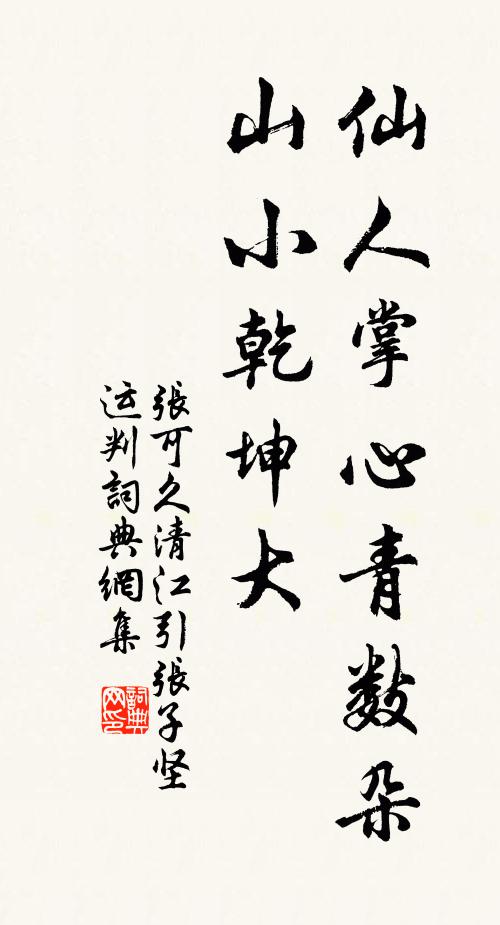 仙人掌心青数朵
山小乾坤大
張可久清江引張子坚
运判詞典網集
詞典网印